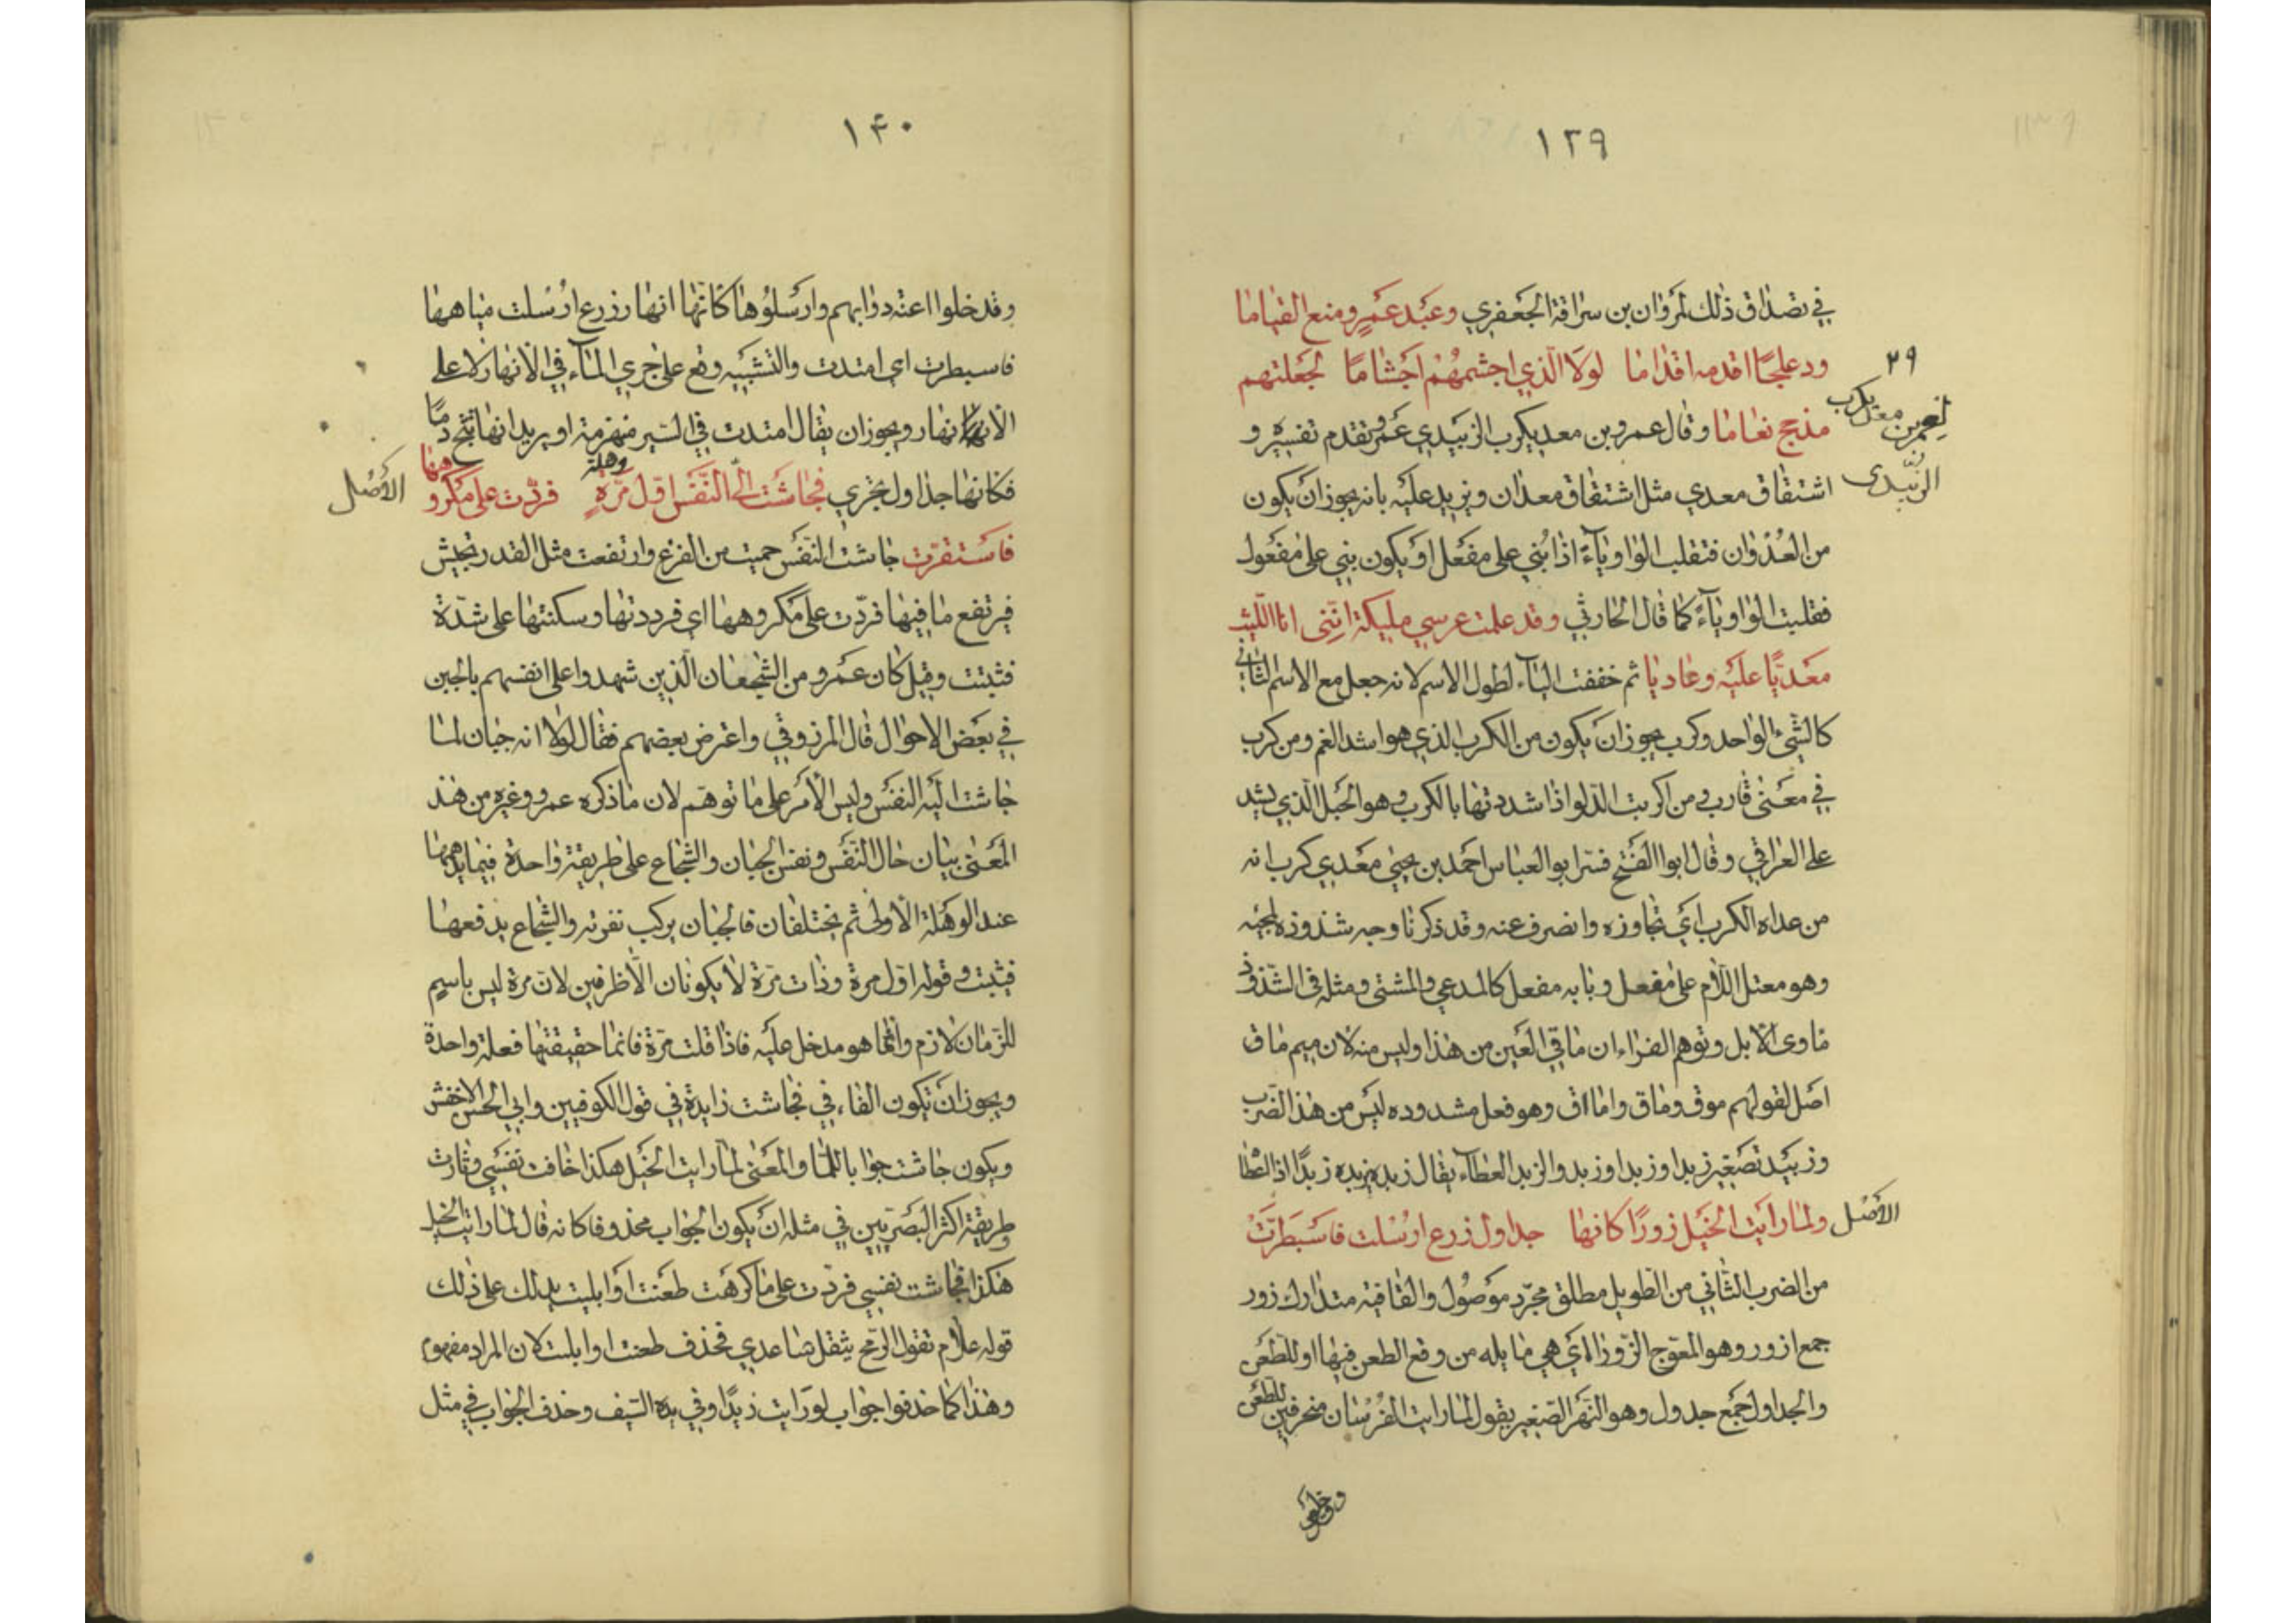 ١٣٩
في تصداق ذلك لمروان بن سراقة الجعفري وعبد عمرو منع القياما
ودعلجًا اقدمه اقداما لولا الّذي اجشمهُمْ اجشاما لجعلتهم
مذحج نعاما وقال عمرو بن معديكرب الزبيدي عمرو تقدم تفسيره و
اشتقاق معدي مثل اشتقاق معدان ويزيد عليه بانه يجوز ان يكون
من العُدْوان فتقلب الواو ياءً اذا بُني على مفعل او يكون بني على مفعول
فقلبت الواو ياءً كما قال الحارثي وقد علمت عرسي مليكة انّني انا اللّيث
معديًّا عليه وعاديا ثم خففت الياء لطول الاسم لانه جعل مع الاسم الثاني
كالشيء الواحد وكرب يجوز ان يكون من الكرب الذي هو اشد الغم ومن كرب
في معنى قارب ومن اكربت الدّلو اذا شددتها بالكرب وهو الحبل الّذي يشد
على العراقي وقال ابوا الفتح فسّر ابو العباس احمد بن يحيى معدي كرب انه
من عداه الكرب اي تجاوزه وانصرف عنه وقد ذكرنا وجه شذوذه لمجيئه
وهو معتل اللّام على مفعل وبابه مفعل كالمدعي والمشتى ومثله في الشّذوذ
ماوى الابل وتوهم الفراء ان ماقي العين من هذا وليس منه لان ميم ماق
اصل لقولهم موق وماق واماق وهو فعل مشدوده ليس من هذا الضّرب
وزبيد تصغير زبد او زبد او زبد والزبد العطاء يقال زبده يزبده زبدًا اذا اعطا
ولما رايت الخيل زورًا كانها جداول زرع ارسلت فاسبطرّتْ
من الضرب الثاني من الطويل مطلق مجرّد موصُول والقافية متدارك زور
جمع ازور وهو المعوّج الزّور اي هي مايله من وقع الطعن فيها او للطعن
والجداول جمع جدول وهو النهر الصّغير يقول لما رايت الفرسان منحرفين للطعن
٢٩
لعمرو بن معد يكرب
الزّبيدى
الأصْل
١٤٠
وقد خلوا اعنه دوابهم وارسلوها كانها انهار زرع ارسلت مياهها
فاسبطرت اي امتدت والتشبيه وقع على جري الماء في الانهار لا على
الانهار ويجوز ان يقال امتدت في السّير منهزمة او يريد انها تثج دمًا
فكانها جداول تجري فجاشت الىّ النّفس اوّل مرّةٍ فردّت على مكروهها
وهلة
فاستقرّت جاشت النّفس حميت من الفزع وارتفعت مثل القدر تجيش
فيرتفع ما فيها فردّت على مكروهها اي فرددتها وسكنتها على شدّة
فثبتت وقيل كان عمرو من الشّجعان الّذين شهدوا على انفسهم بالجبن
في بعض الاحوال قال المرزوقي واعترض بعضهم فقال لولا انه جبان لما
جاشت اليه النفس وليس الأمر على ما توهّم لان ما ذكره عمرو وغيره من هذ
المعنى بيان حال النّفس ونفس الجبان والشّجاع على طريقة واحدة فيما يدهمها
عند الوهلة الاولى ثم يختلفان فالجبان يركب نفرته والشجاع يدفعها
فيثبت وقوله اوّل مرة وذات مرّة لا يكونان الّا ظرفين لانّ مرة ليس باسم
للزّمان لازم وانّما هو مدخل عليه فاذا قلت مرّة فانما حقيقتها فعلة واحدة
ويجوز ان تكون الفاء في فجاشت زايدة في قول الكوفيين وابي الحسن الاخفش
ويكون جاشت جوابا للمّا والمعنى لمّا رايت الخيل هكذا خافت نفسي وثارت
وطريقة اكثر البصريّين في مثله ان يكون الجواب محذوفا كانه قال لما رايت الخيل
هكذا فجاشت نفسي فردّت على ما كرهت طعنت او ابليت يدلك على ذلك
قوله علام تقول الرّمح يثقل عاتقي فحذف طعنت او ابليت لان المراد مفهوم
وهذا كما حذفوا جواب لو رايت زيدًا وفي يده السّيف وحذف الجواب في مثل
الأصْل